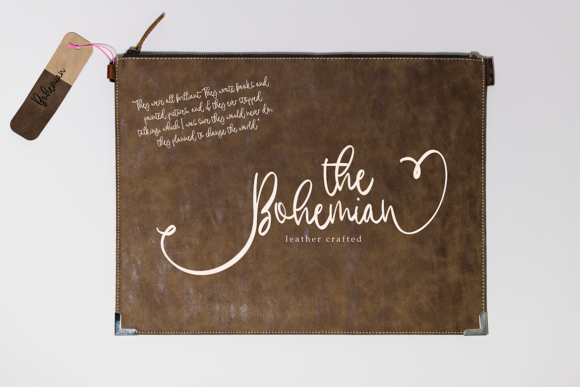 Bohemian
"They were all brilliant. They wrote books and
painted pictures, and if they ever stopped
talking, which I was sure they would never do,
they planned to change the world."
the
Bohemian
leather crafted